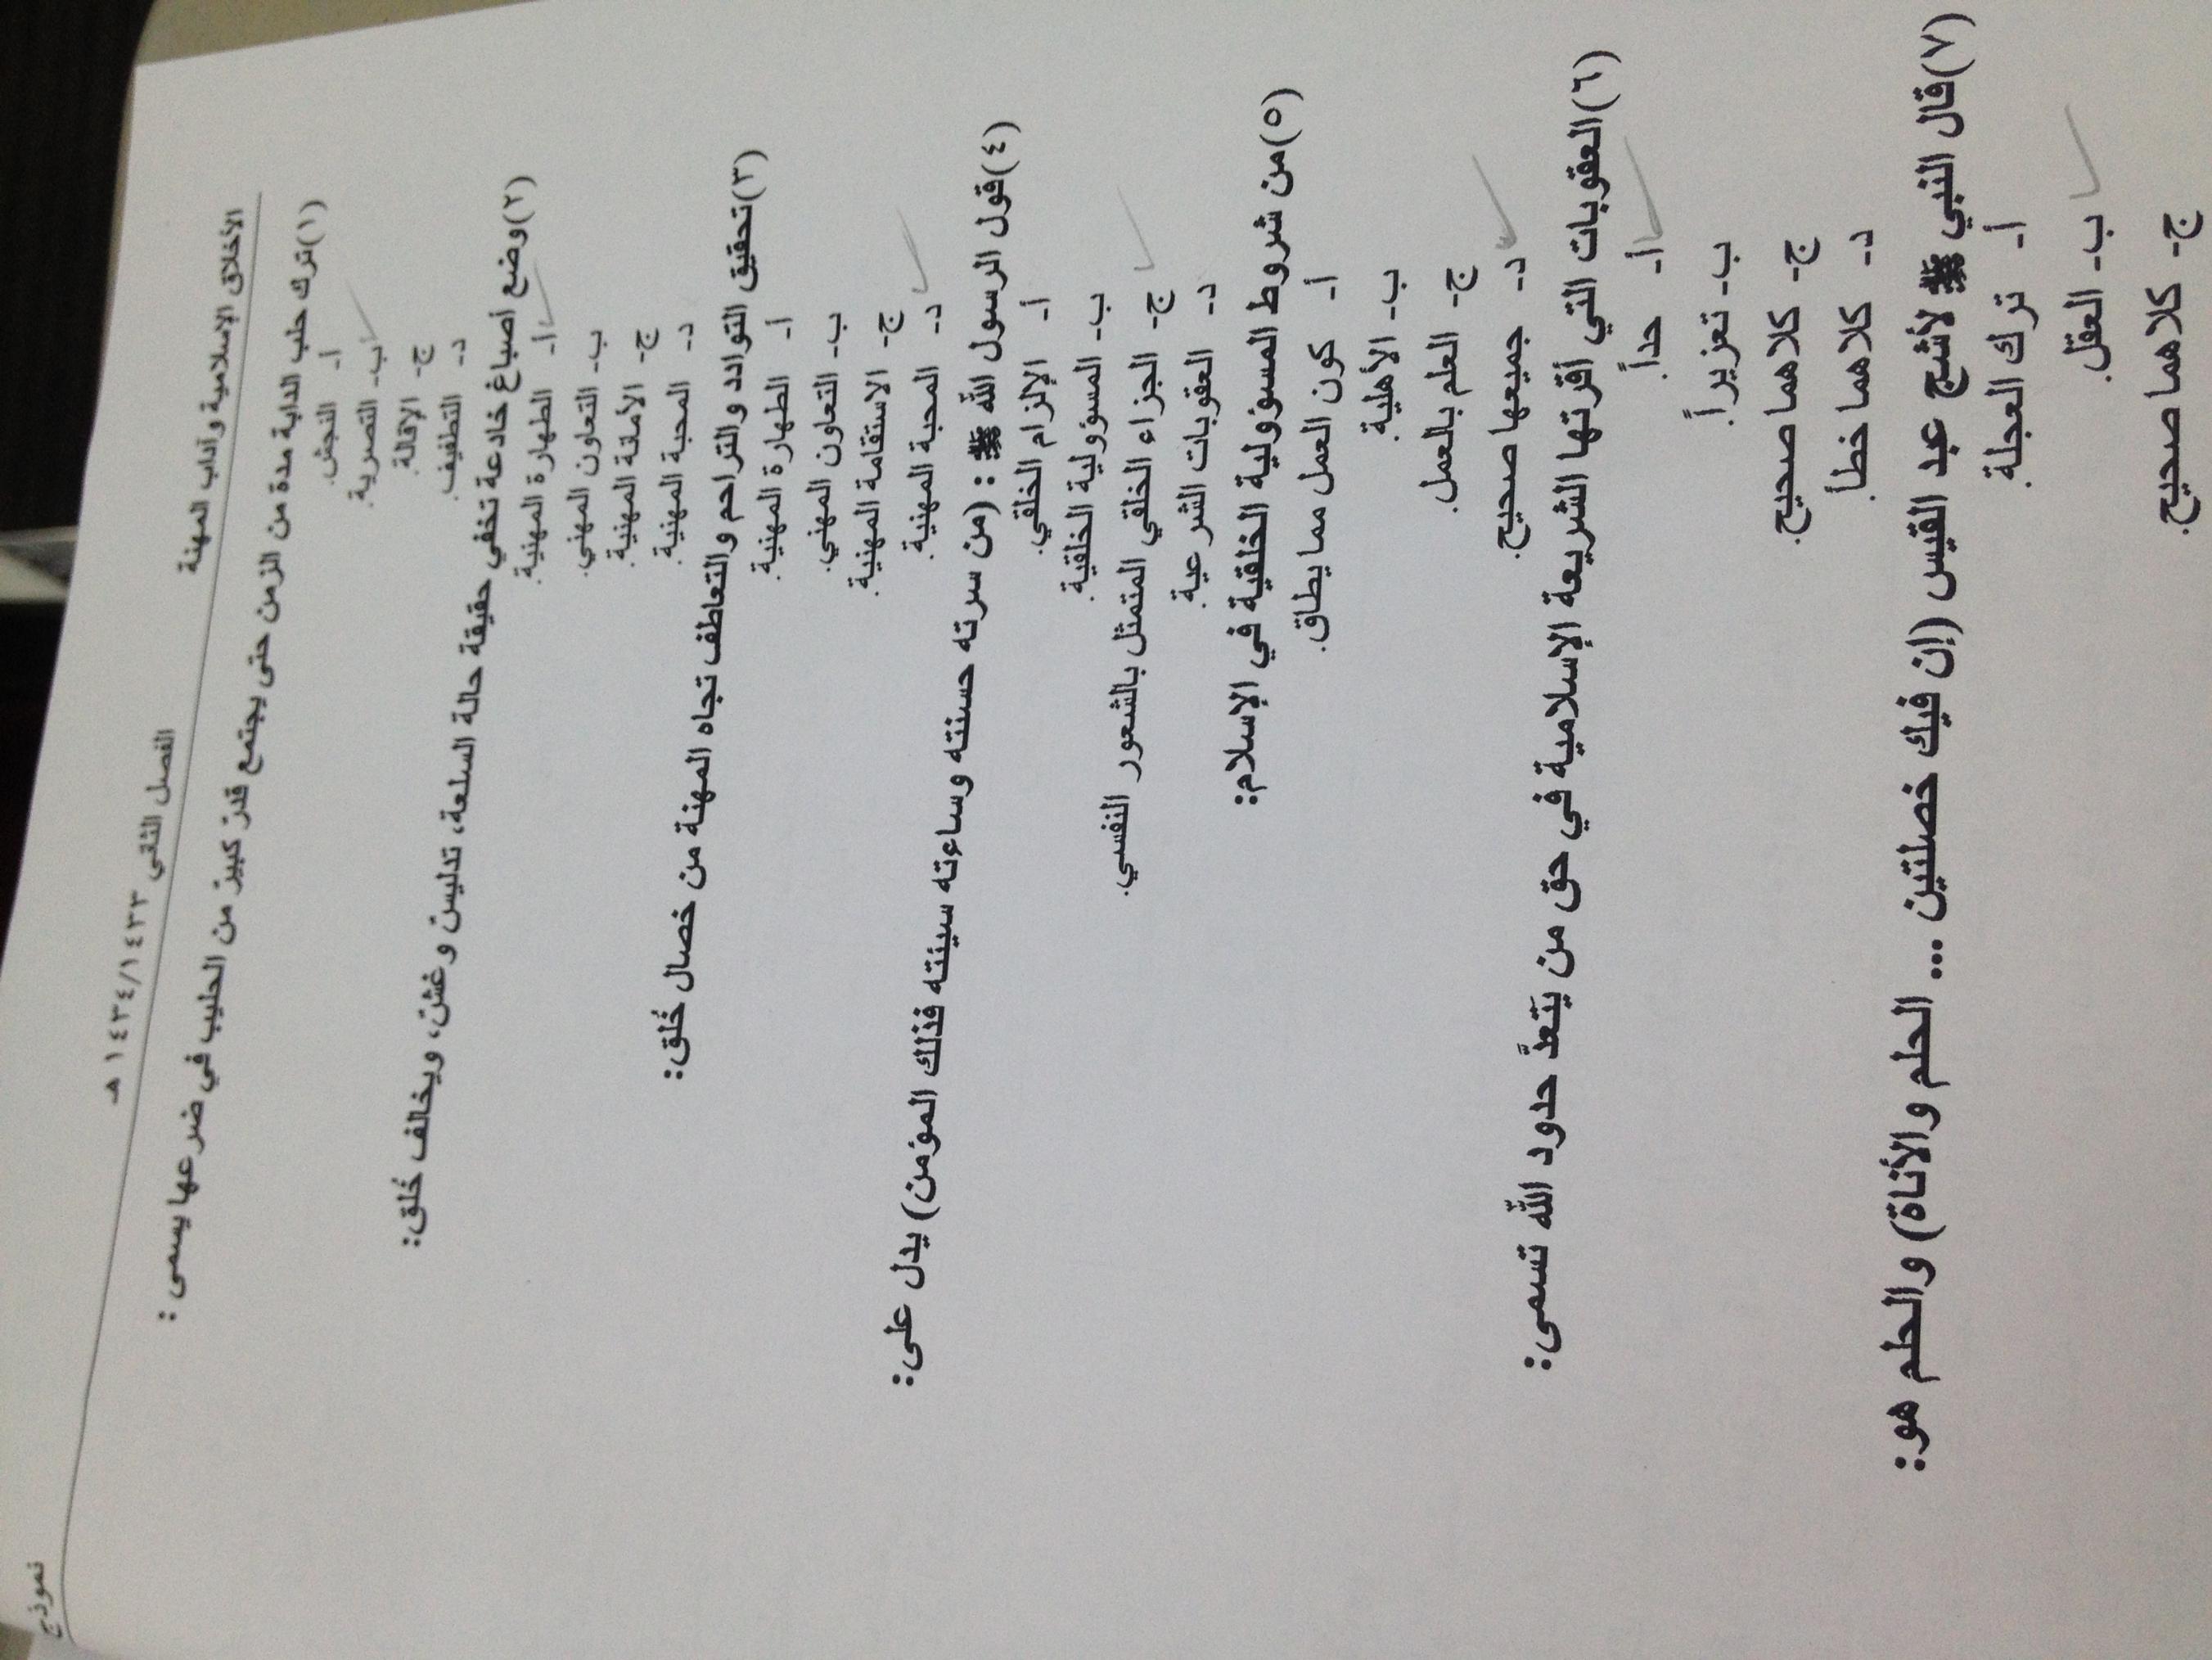 نموذج
الأخلاق الإسلامية وآداب المهنة
الفصل الثاني ١٤٣٤/١٤٣٣ هـ
(١)ترك حلب الداية مدة من الزمن حتى يجتمع قدر كبير من الحليب في ضرعها يسمى :
أ- النجش.
ب- التصرية.
ج- الإقالة.
د- التطفيف.
(٢)وضع أصباغ خادعة تخفي حقيقة حالة السلعة، تدليس وغش، ويخالف خُلق:
أ- الطهارة المهنية.
ب- التعاون المهني.
ج- الأمانة المهنية.
د- المحبة المهنية.
(٣)تحقيق التوادد والتراحم والتعاطف تجاه المهنة من خصال خُلق:
أ- الطهارة المهنية.
ب- التعاون المهني.
ج- الاستقامة المهنية.
د- المحبة المهنية.
(٤)قول الرسول الله ﷺ : (من سرته حسنته وساءته سيئته فذلك المؤمن) يدل على:
أ- الإلزام الخلقي.
ب- المسؤولية الخلقية.
ج- الجزاء الخلقي المتمثل بالشعور النفسي.
د- العقوبات الشرعية.
(٥)من شروط المسؤولية الخلقية في الإسلام:
أ- كون العمل مما يطاق.
ب- الأهلية.
ج- العلم بالعمل.
د- جميعها صحيح.
(٦)العقوبات التي أقرتها الشريعة الإسلامية في حق من يتعدَّ حدود الله تسمى:
أ- حداً.
ب- تعزيراً.
ج- كلاهما صحيح.
د- كلاهما خطأ.
(٧)قال النبي ﷺ لأشج عبد القيس (إن فيك خصلتين ... الحلم والأناة) والحلم هو:
أ- ترك العجلة.
ب- العقل.
ج- كلاهما صحيح.